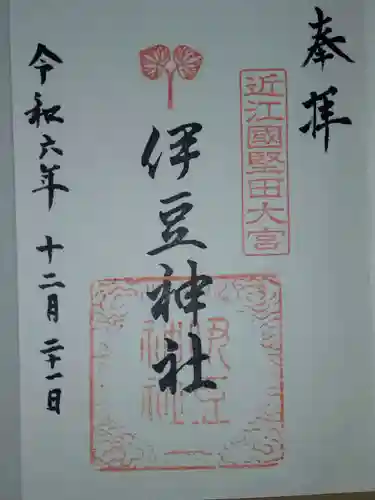 奉拝
近江國堅田大宮
伊豆神社
令和六年 十二月二十一日